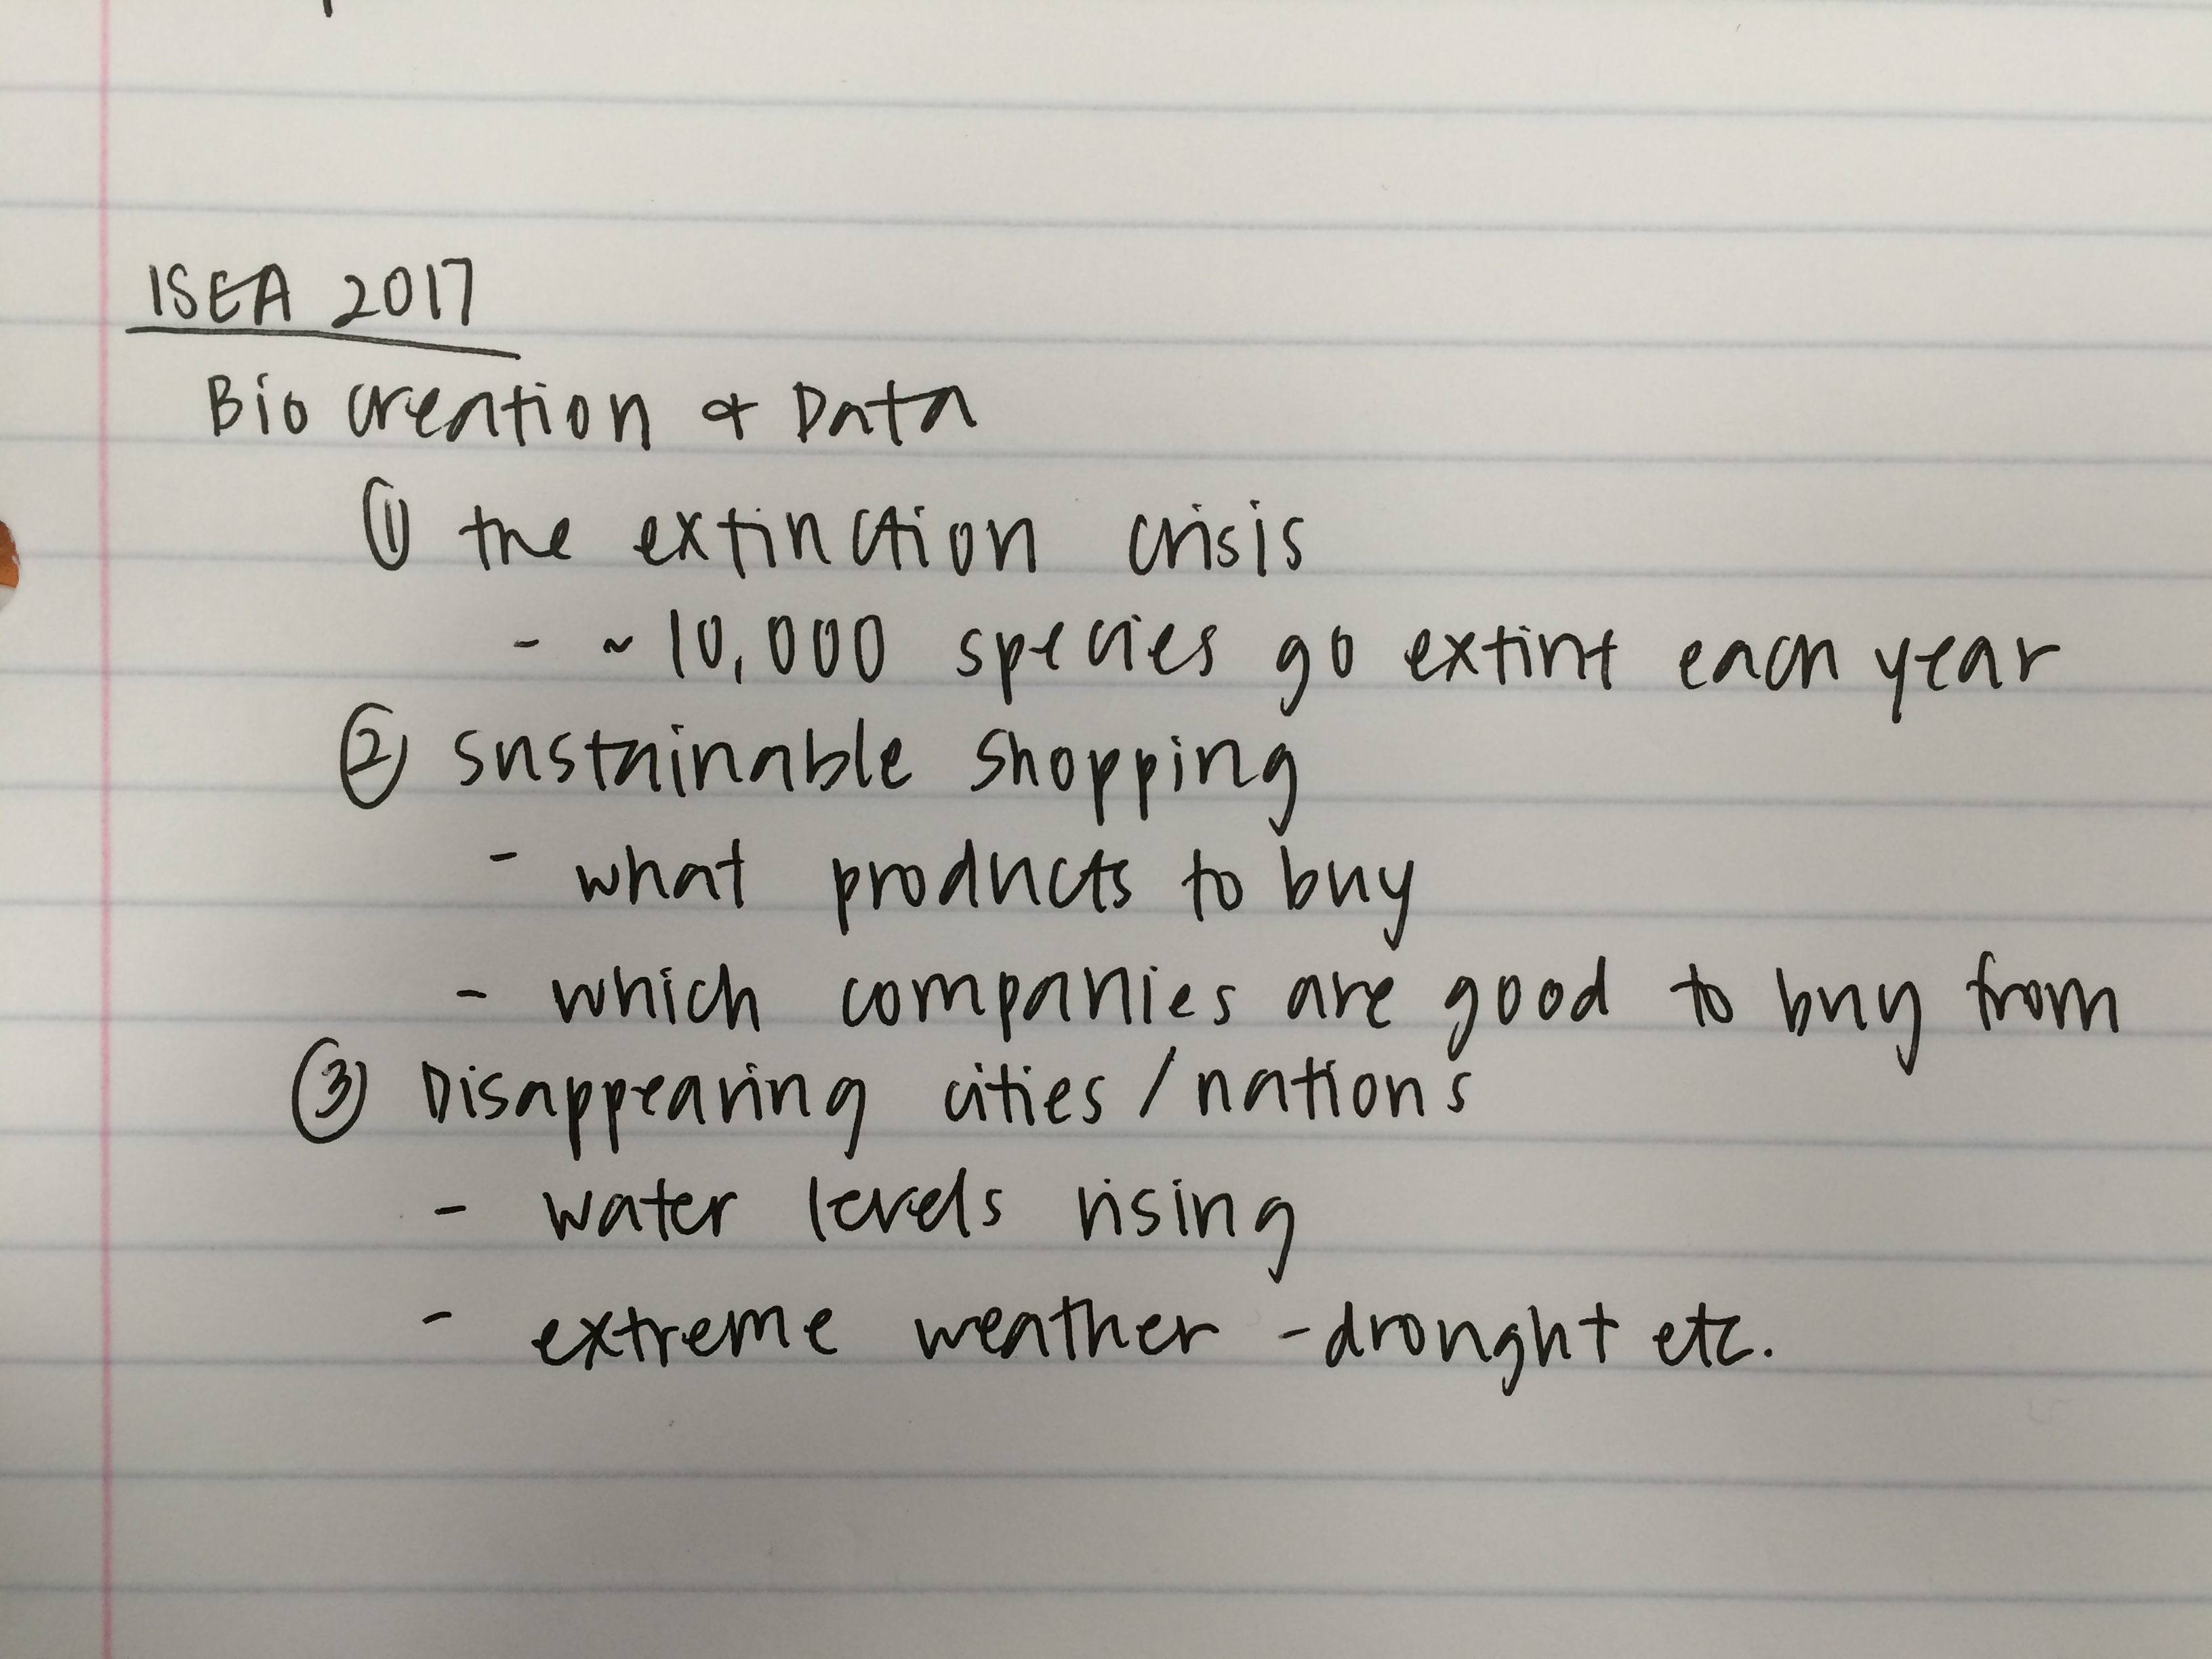 ISEA 2017
Bio creation & Data
① the extinction crisis
- ~10,000 species go extint each year
② sustainable shopping
- what products to buy
- which companies are good to buy from
③ Disappearing cities/nations
- water levels rising
- extreme weather - drought etc.